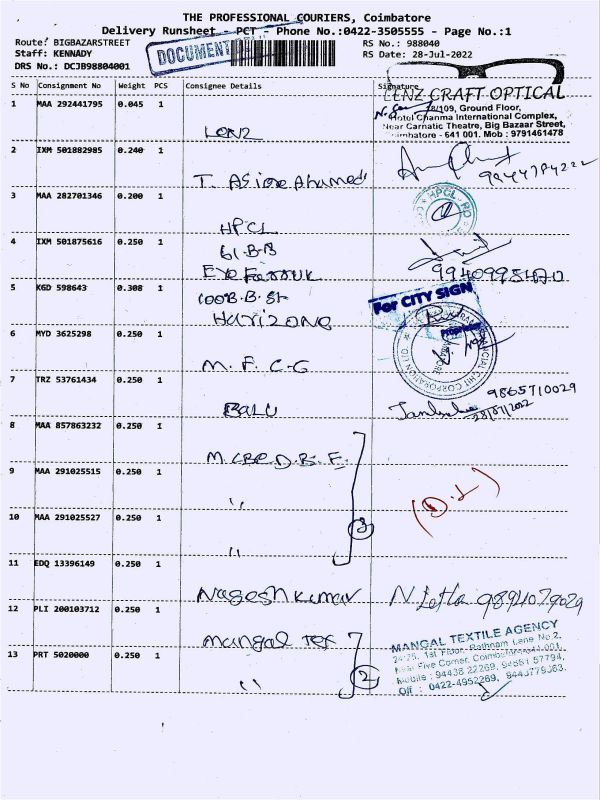 THE PROFESSIONAL COURIERS, Coimbatore
Delivery Runsheet - PCT - Phone No.:0422-3505555 - Page No.:1
Route: BIGBAZARSTREET RS No.: 988040
Staff: KENNADY RS Date: 28-Jul-2022
DRS No.: DCJB98804001
DOCUMENT
S No Consignment No Weight PCS Consignee Details Signature
LENZ CRAFT OPTICAL
1 MAA 292441795 0.045 1
28/109, Ground Floor,
Hotel Channa International Complex,
Near Carnatic Theatre, Big Bazaar Street,
Coimbatore - 641 001. Mob : 9791461478
2 IXM 501882985 0.240 1
T. Asiae Ahamed
3 MAA 282701346 0.200 1
HPCL
4 IXM 501875616 0.250 1
61.B.B
5 KGD 598643 0.308 1
100B.B.St
Harizong
For CITY SIGN
Proprietor
6 MYD 3625298 0.250 1
M. F. C-G
7 TRZ 53761434 0.250 1
BALU
9865710029
28/07/2022
8 MAA 857863232 0.250 1
9 MAA 291025515 0.250 1
〃
(D.L)
10 MAA 291025527 0.250 1
〃
3
11 EDQ 13396149 0.250 1
Nagesh Kumar
9894079029
12 PLI 200103712 0.250 1
Mangal Tex
MANGAL TEXTILE AGENCY
24/25, 1st Floor, Rathnam Lane No 2,
Near Five Corner, Coimbatore-641 001.
13 PRT 5020000 0.250 1
〃
2
Off : 0422-4952269,